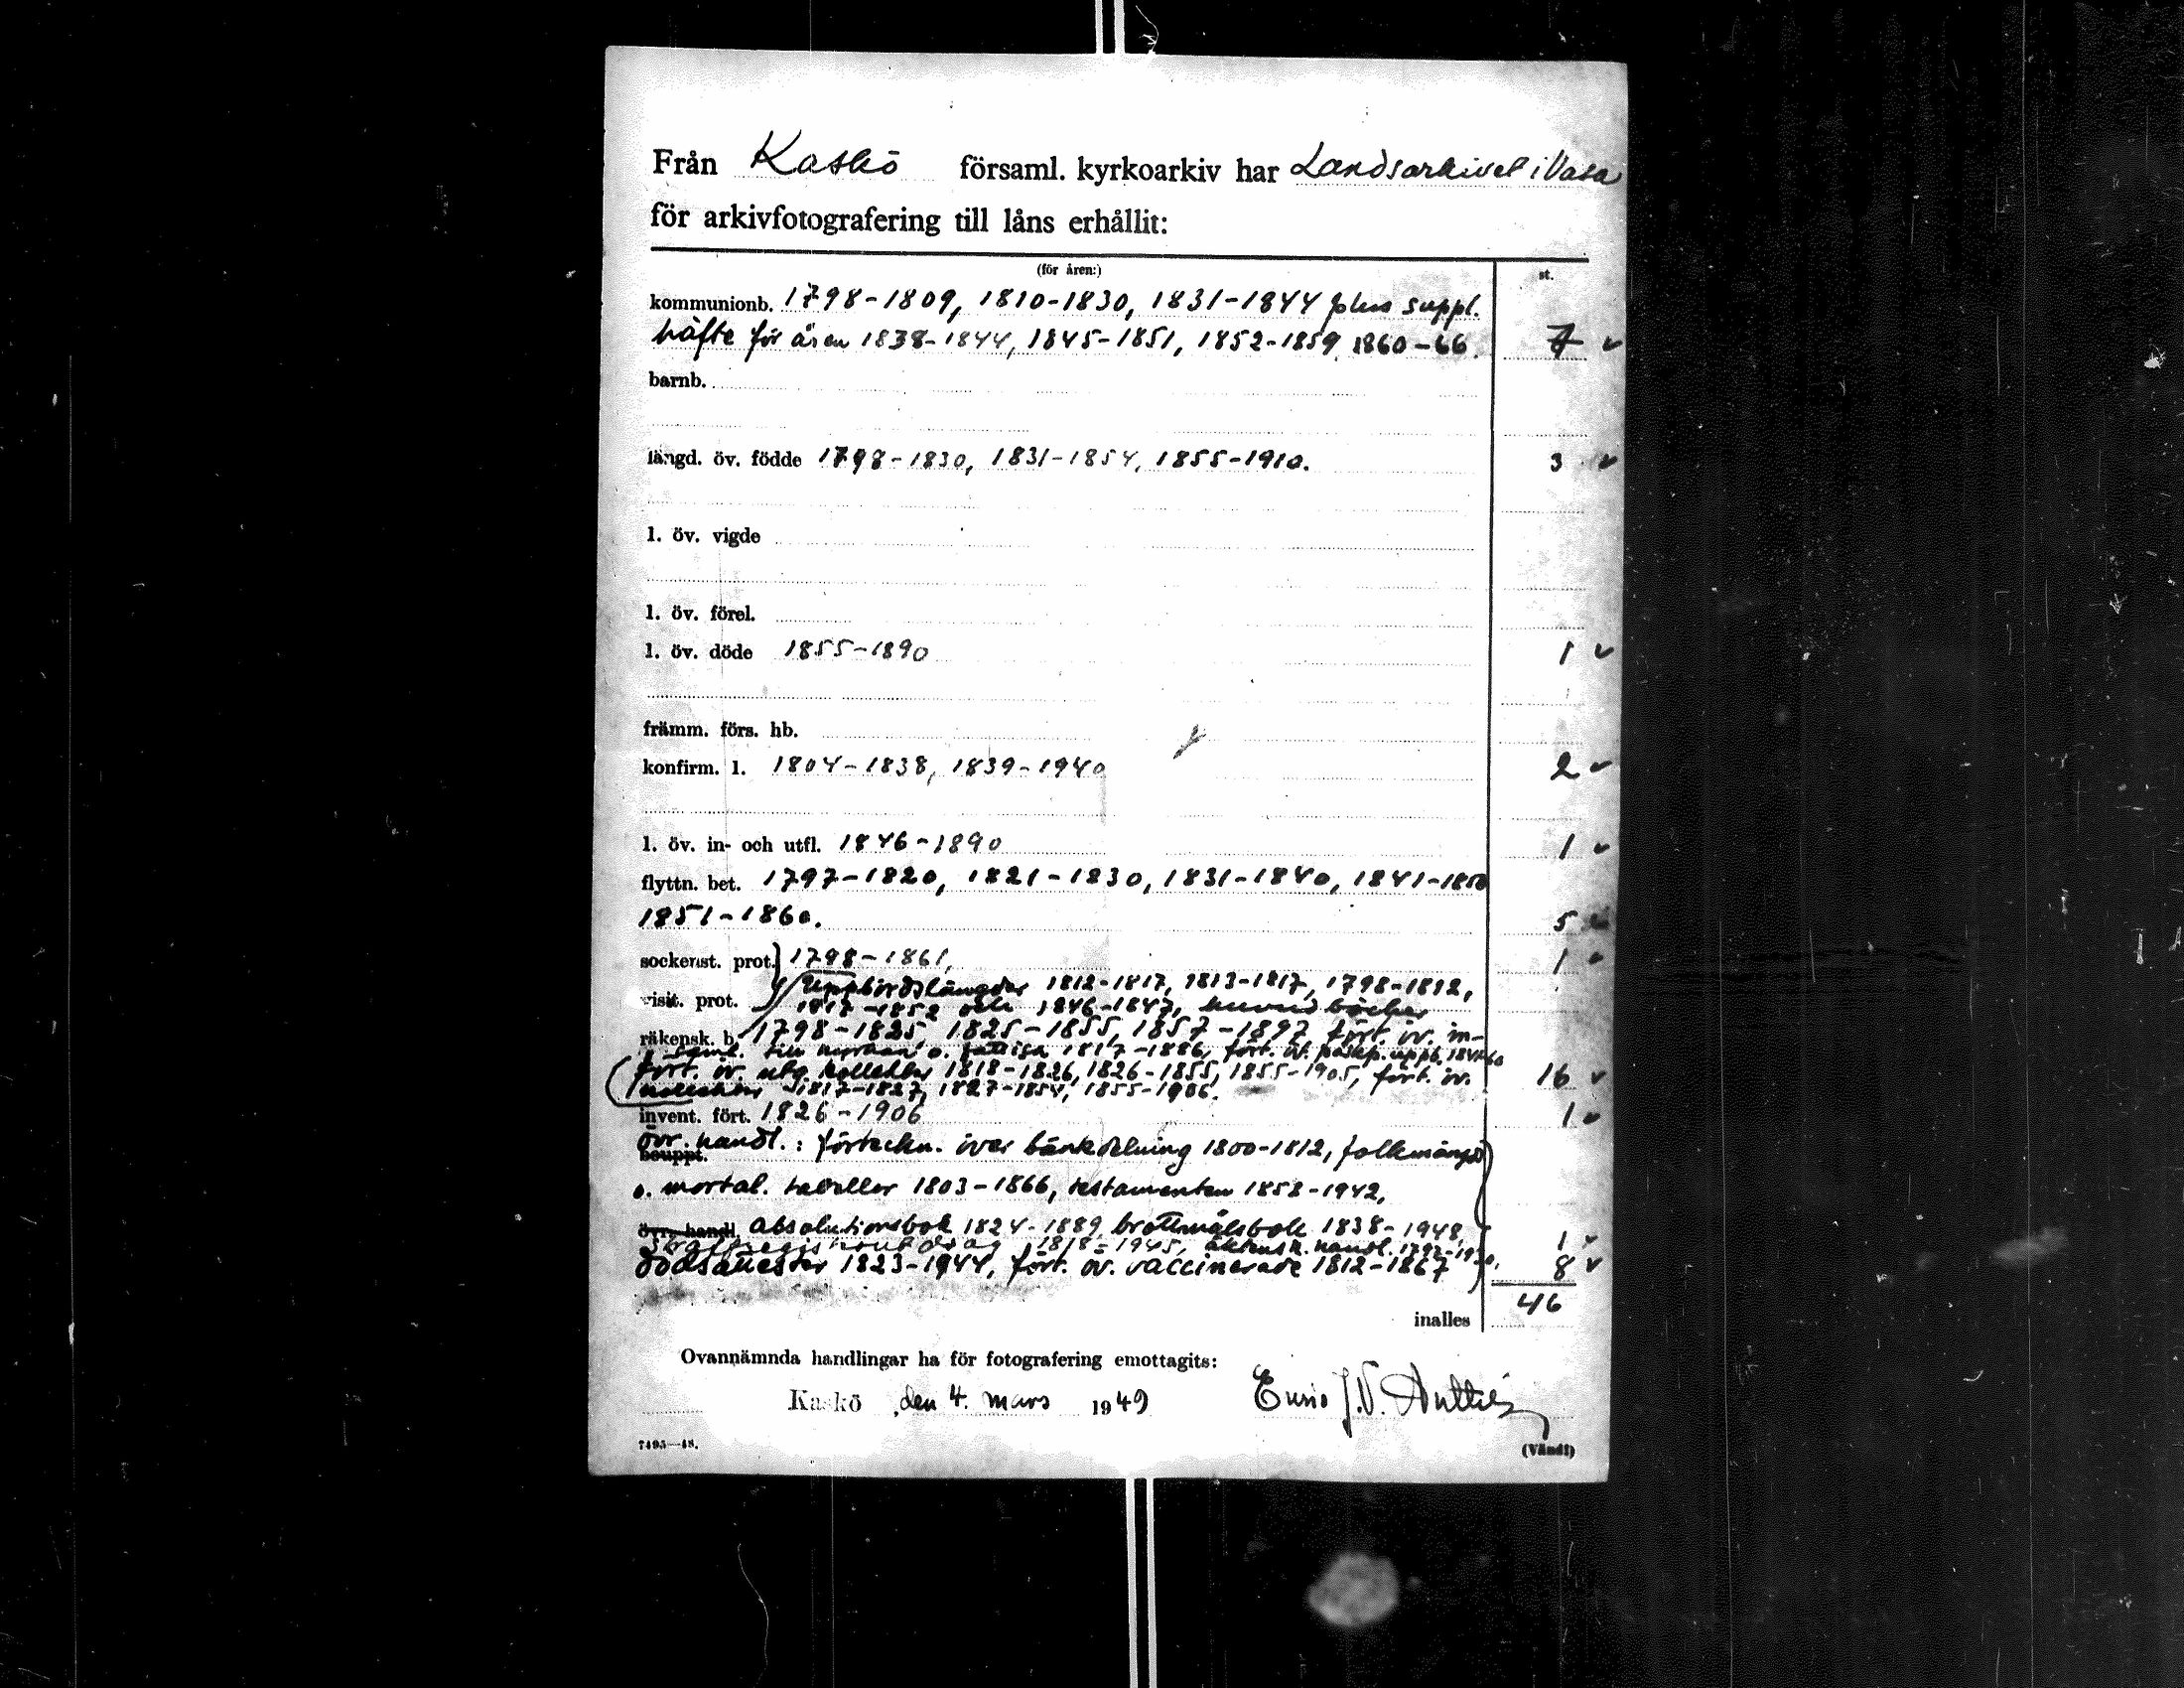 Från Kaskö församl. kyrkoarkiv har Landsarkivet i Vasa
för arkivfotografering till låns erhållit:
(för åren:) st.
kommunionb. 1798-1809, 1810-1830, 1831-1844 plus suppl.
häfte för åren 1838-1844, 1845-1851, 1852-1859, 1860-66. 7
barnb.
längd. öv. födde 1798-1830, 1831-1854, 1855-1910. 3
l. öv. vigde
l. öv. förel.
l. öv. döde 1855-1890 1
främm. förs. hb.
konfirm. l. 1804-1838, 1839-1940 2
l. öv. in- och utfl. 1846-1890 1
flyttn. bet. 1797-1820, 1821-1830, 1831-1840, 1841-1850
1851-1860. 5
sockenst. prot. 1798-1861, 1
visit. prot. Uppbördslängder 1812-1817, 1813-1817, 1798-1812,
1817-1852 och 1846-1847, huvudböcker
räkensk. b. 1798-1825, 1825-1855, 1857-1897, fört. öv. in-
saml. till kyrkan o. fattiga 1817-1886, fört. öv. påskp. uppb.
fört. öv. utg. kollekter 1818-1826, 1826-1855, 1855-1905, fört. öv. 16
kollekter 1817-1827, 1827-1854, 1855-1906.
invent. fört. 1826-1906 1
övr. handl.: förteckn. över bänkdelning 1800-1812, folkmängd
bouppt.
o. mortal. tabeller 1803-1866, testamenten 1858-1942,
övr. handl. absolutionsbok 1824-1889, brottmålsbok 1838-1948, 1
straffregisterutdrag 1818-1945, äktensk. handl.
dödsattester 1823-1944, fört. öv. vaccinerade 1812-1867 8
46
inalles
Ovannämnda handlingar ha för fotografering emottagits:
Kaskö den 4. mars 1949
7495—48. (Vänd!)